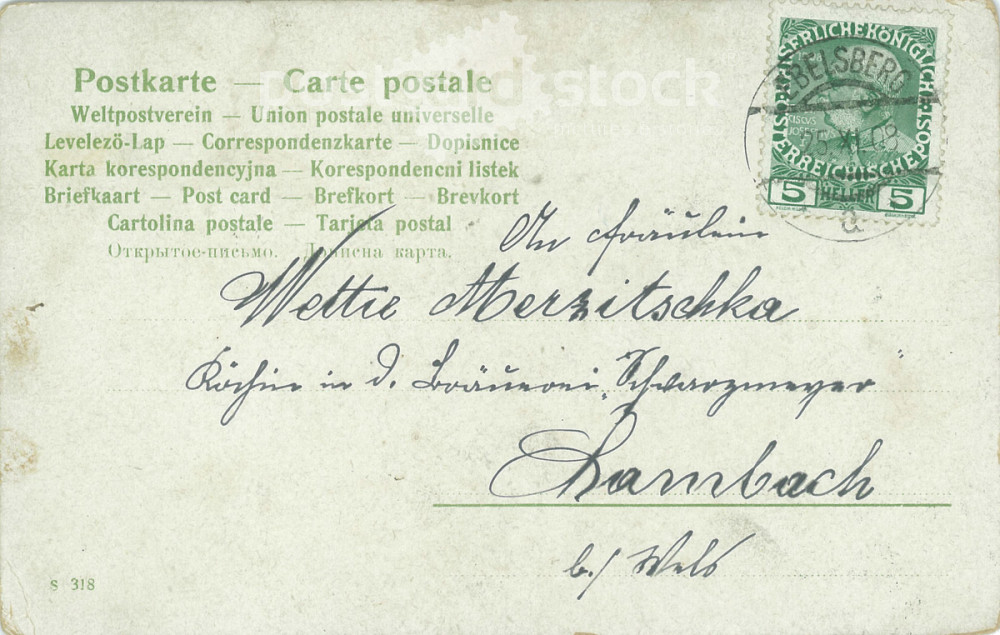 Postkarte — Carte postale
Weltpostverein — Union postale universelle
Levelezö-Lap — Correspondenzkarte — Dopisnice
Karta korespondencyjna — Korespondencni listek
Briefkaart — Post card — Brefkort — Brevkort
Cartolina postale — Tarjeta postal
Открытое-письмо. — Дописна карта.
KAISERLICHE KÖNIGLICHE
ÖSTERREICHISCHE POST
5 HELLER 5
EBELSBERG
25 XI 08
a
An Fräulein
Wettie Merzitschka
Köchin in d. Bräuerei „Schwarzmeyer“
Lambach
b./ Wels
S 318
stock